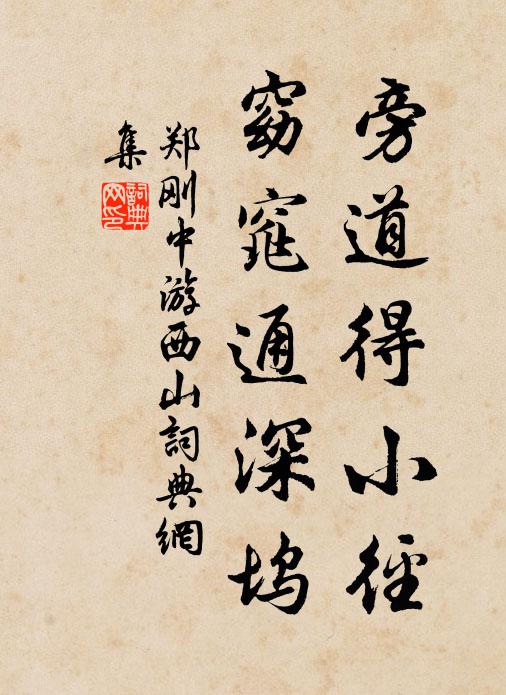 旁道得小徑
窈窕通深坞
郑刚中游西山詞典網
集
詞典网印